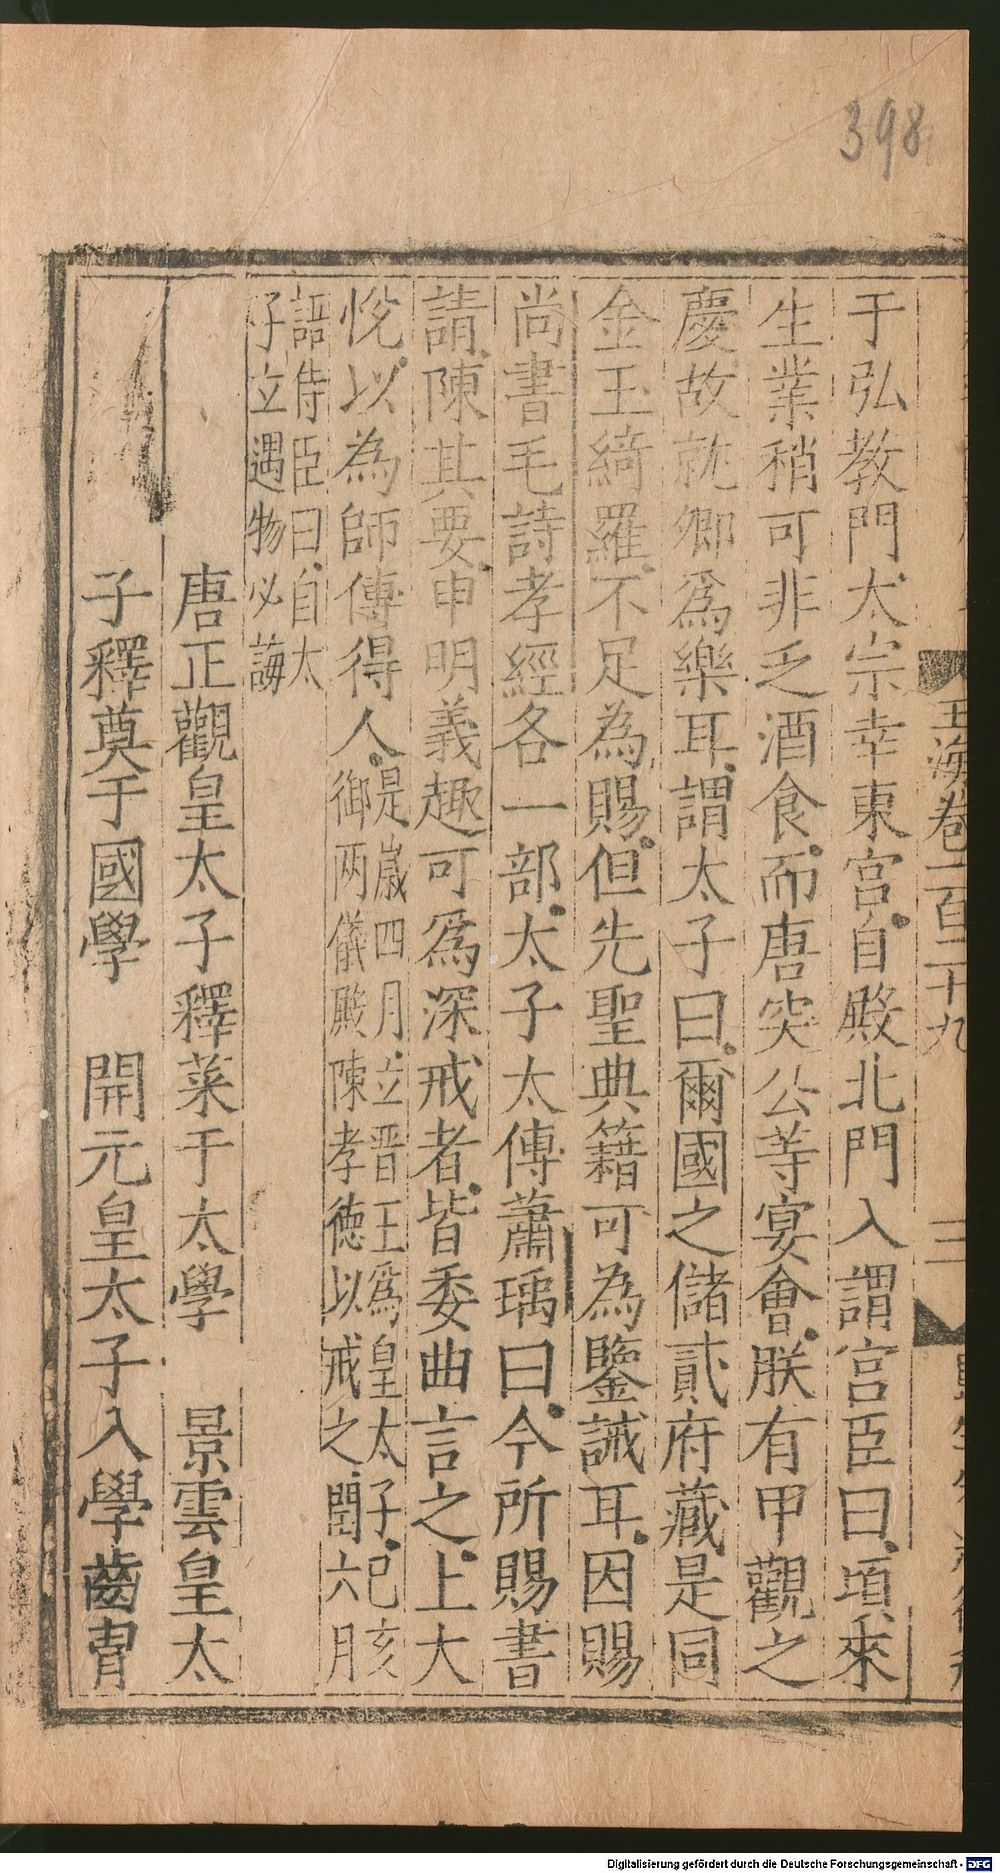 398
玉海卷一百二十九
三
于弘教門太宗幸東宮自殿北門入謂宮臣曰頃來
生業稍可非乏酒食而唐突公等宴會朕有甲觀之
慶故就卿爲樂耳謂太子曰爾國之儲貳府藏是同
金玉綺羅不足為賜但先聖典籍可為鑒誡耳因賜
尚書毛詩孝經各一部太子太傳蕭瑀曰今所賜書
請陳其要申明義趣可爲深戒者皆委曲言之上大
悅以為師傅得人
是歲四月立晉王爲皇太子己亥
御两儀殿陳孝德以戒之閏六月
語侍臣曰自太
子立遇物必誨
唐正觀皇太子釋菜于太學 景雲皇太
子釋奠于國學 開元皇太子入學齒冑
Digitalisierung gefördert durch die Deutsche Forschungsgemeinschaft - DFG